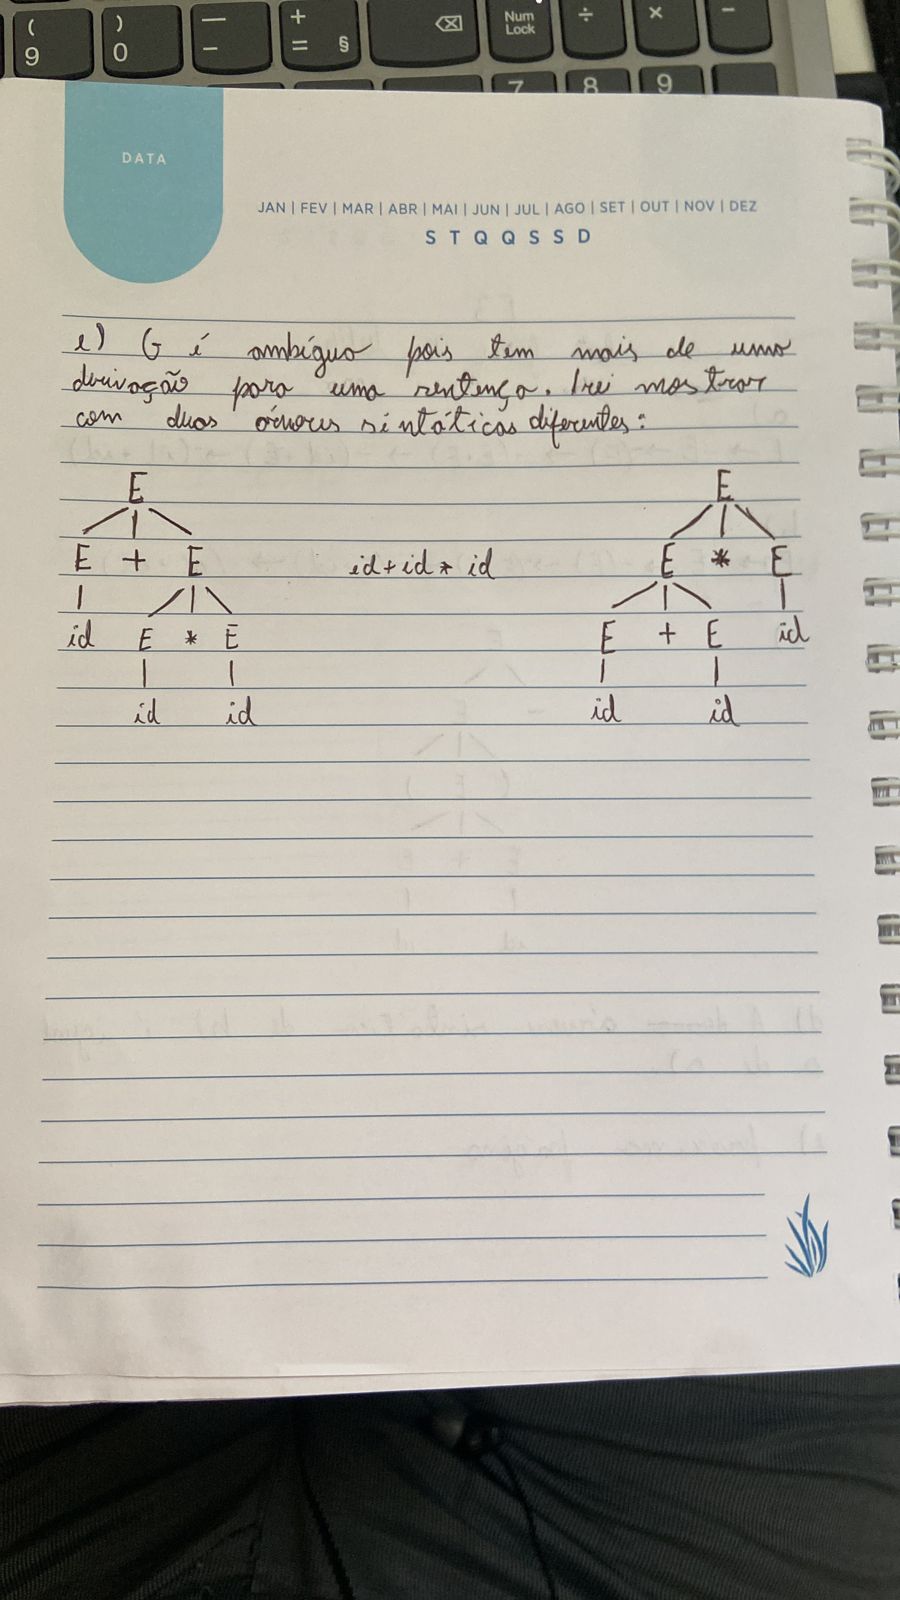 (
9
)
0
—
–
+
= §
Num
Lock
÷
×
−
7
8
9
DATA
JAN | FEV | MAR | ABR | MAI | JUN | JUL | AGO | SET | OUT | NOV | DEZ
S T Q Q S S D
e) G é ambígua pois tem mais de uma
derivação para uma sentença. Irei mostrar
com duas árvores sintáticas diferentes:
E
E + E
id E * E
id id
id+id* id
E
E * E
E + E id
id id